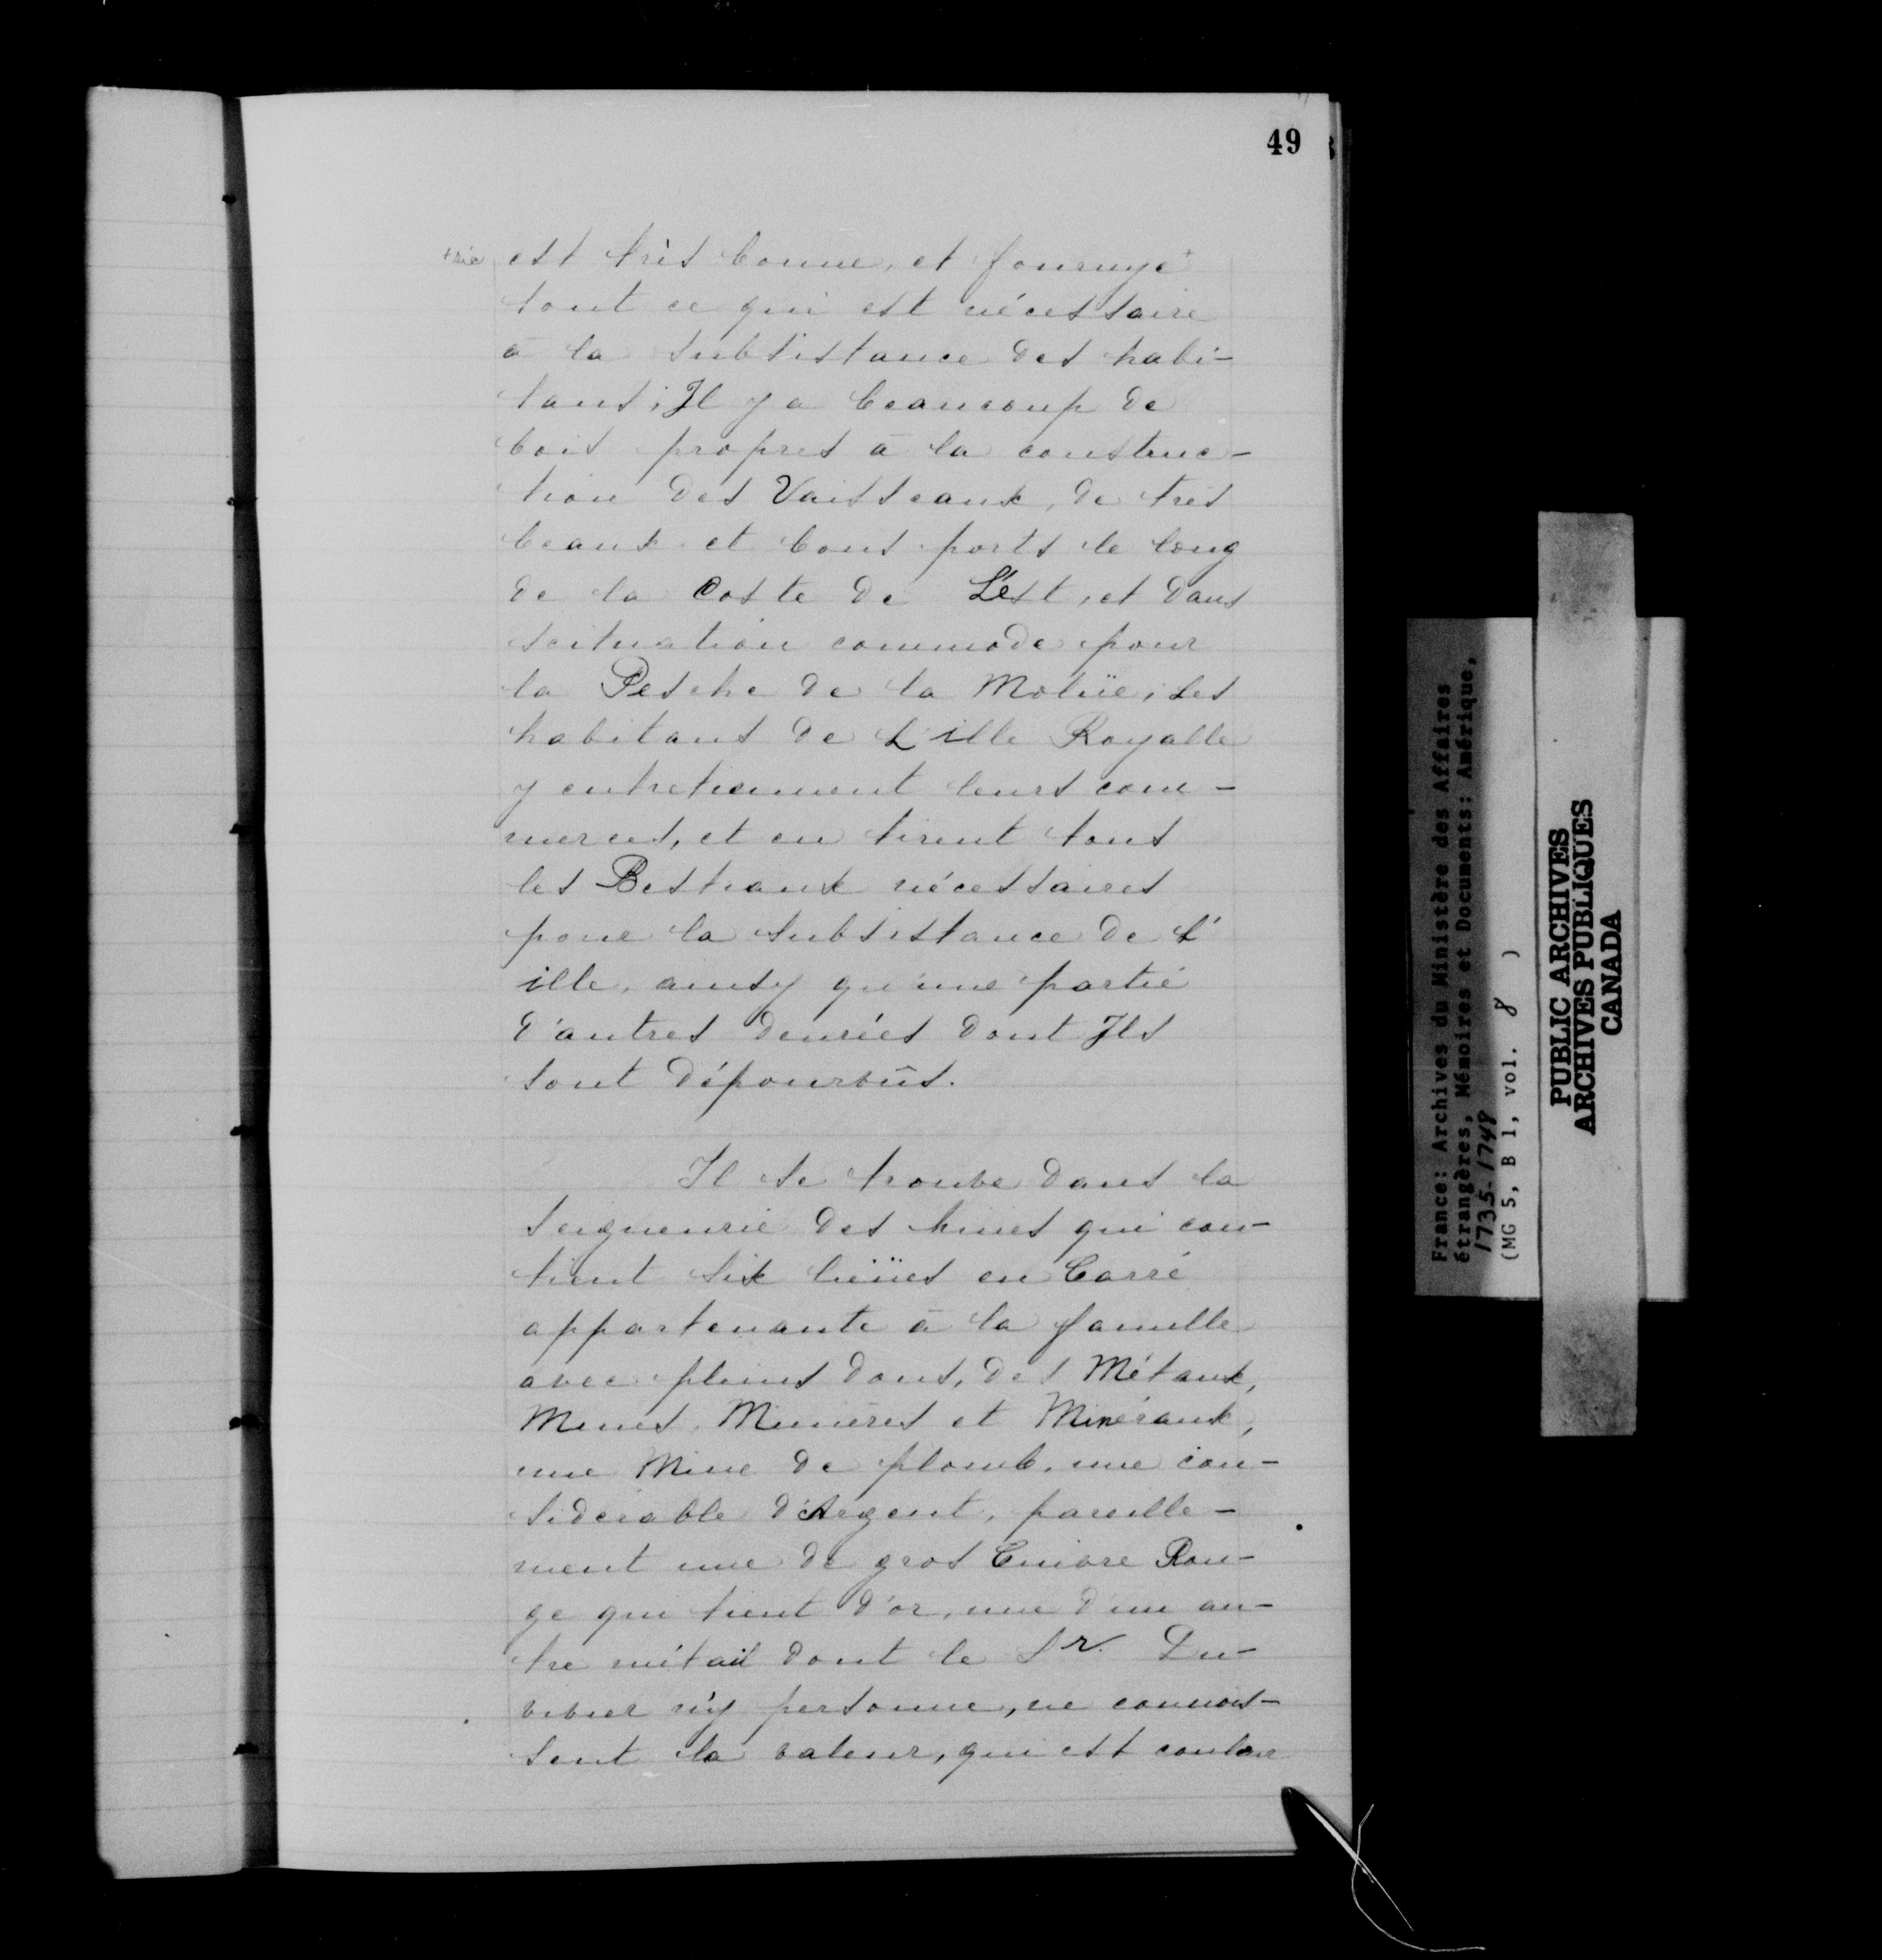 49
+sic est très bonne, et fournye+
tout ce qui est nécessaire
à la subsistance des habi-
tans; Il y a beaucoup de
bois propres à la construc-
tion des Vaisseaux, de très
beaux et bons ports le long
de la Coste de L'Est, et dans
scituation commode pour
la Pesche de la Moluë; Les
habitans de L'isle Royalle
y entretiennent leurs com-
merces, et en tirent tous
les Bestiaux nécessaires
pour la subsistance de L'
isle, ainsy qu'une partie
d'autres denrées dont Ils
sont dépourvûs.
Il se trouve dans la
Seigneurie des Mines qui con-
tient six lieües en Carré
appartenante à la famille
avec pleins dons, des Métaux,
Mines, Minières et Minéraux,
une Mine de plomb, une con-
sidérable d'Argent, pareille-
ment une de gros Cuivre Rou-
ge qui tient d'or, une d'un au-
tre métail dont le Sr. Du-
vivier n'y personne, ne connois-
sent la valeur, qui est couleur
France: Archives du Ministère des Affaires
étrangères, Mémoires et Documents: Amérique,
1735-1748
(MG 5, B 1, vol. 8 )
PUBLIC ARCHIVES
ARCHIVES PUBLIQUES
CANADA